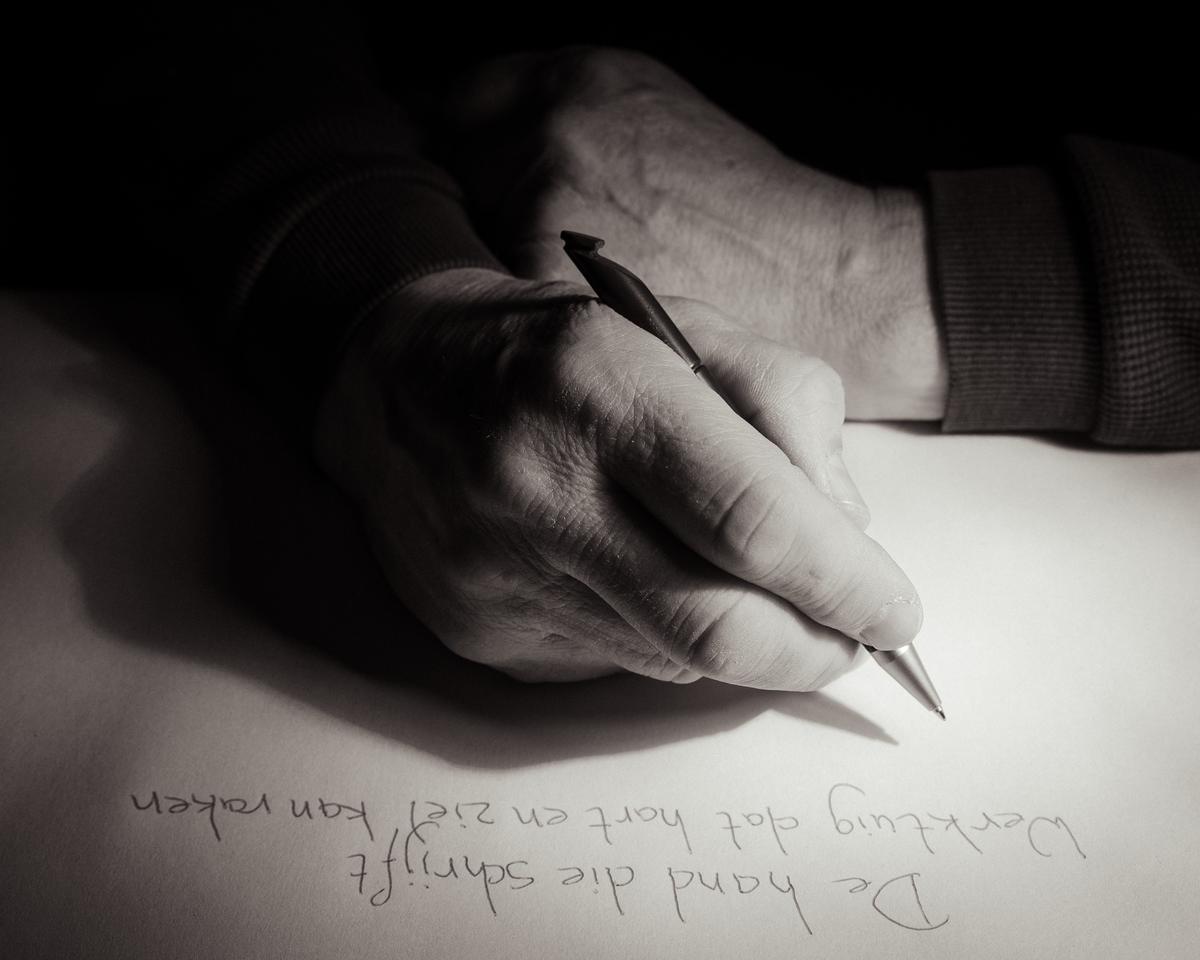 De hand die schrijft
Werktuig dat hart en ziel kan raken